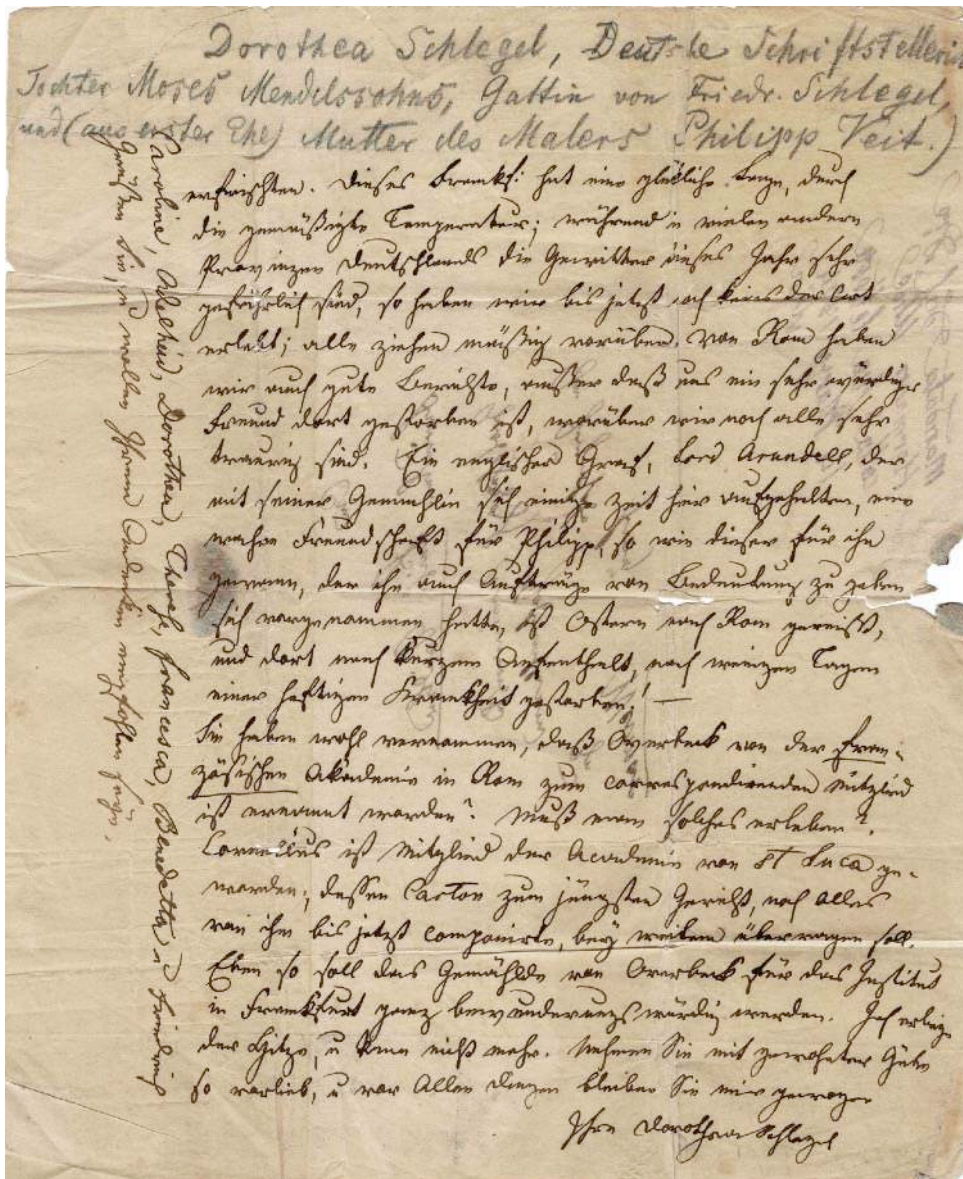 Dorothea Schlegel, Deutsche Schriftstellerin
Tochter Moses Mendelssohns, Gattin von Friedr. Schlegel,
und (aus erster Ehe) Mutter des Malers Philipp Veit.)
erfrischten. Dieses Frankf: hat eine glückliche Lage, durch
die gemäßigte Temperatur; während in vielen andern
Provinzen Deutschlands die Gewitter dieses Jahr sehr
gefährlich sind, so haben wir bis jetzt noch keines der Art
erlebt; alle ziehen mäßig vorüben. Von Rom haben
wir auch gute Berichte, außer daß uns ein sehr würdiger
Freund dort gestorben ist, worüber wir noch alle sehr
traurig sind. Ein englischer Graf, Lord Arundell, der
mit seiner Gemahlin sich einige Zeit hier aufgehalten, eine
wahre Freundschaft für Philipp, so wie dieser für ihn
gewann, der ihm auch Aufträge von Bedeutung zu geben
sich vorgenommen hatte, ist Ostern nach Rom gereist,
und dort nach kurzem Aufenthalt, nach wenigen Tagen
einer heftigen Krankheit gestorben! —
Sie haben wohl vernommen, daß Overbeck von der Fran-
zösischen Akademie in Rom zum correspondirenden Mitglied
ist ernannt worden? Muß man solches erleben?
Cornelius ist Mitglied der Academie von St Luca ge-
worden; dessen Carton zum jüngsten Gericht, noch alles
von ihm bis jetzt componirte, bey weitem überragen soll.
Eben so soll das Gemählde von Overbeck für das Institut
in Frankfurt ganz bewunderungswürdig werden. Ich erliege
der Hitze, u kann nicht mehr. Nehmen Sie mit gewohnter Güte
so vorlieb, u vor Allen Dingen bleiben Sie mir gewogen
Ihre Dorothea Schlegel
Caroline, Adelheid, Dorothea, Therese, Francesca, Benedetta u Friedrich
grüßen Sie, u wollen Ihrem Andenken empfohlen seyn.